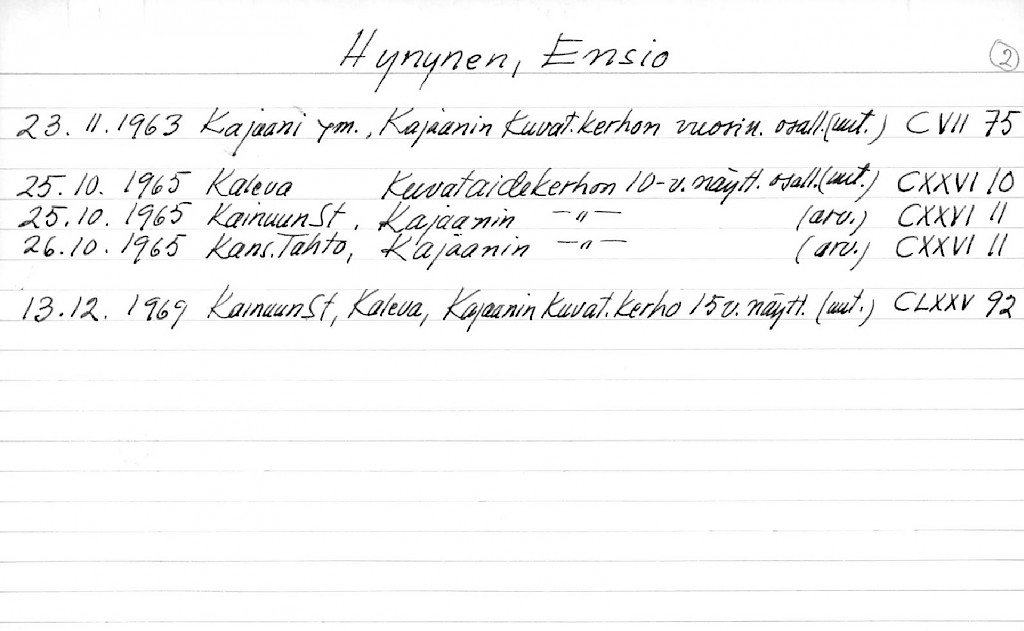 Hynynen, Ensio 2
23.11.1963 Kajaani ym., Kajaanin Kuvat.kerhon vuosin. osall. (uut.) CVII 75
25.10.1965 Kaleva Kuvataidekerhon 10-v. näytt. osall. (uut.) CXXVI 10
25.10.1965 KainuunSt, Kajaanin —"— (arv.) CXXVI 11
26.10.1965 Kans.Tahto, Kajaanin —"— (arv.) CXXVI 11
13.12.1969 KainuunSt, Kaleva, Kajaanin Kuvat.kerho 15v. näytt. (uut.) CLXXV 92